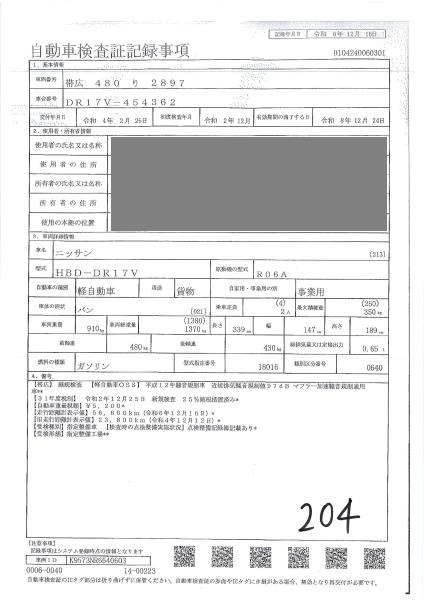 記録年月日 令和 6年12月16日
自動車検査証記録事項
0104240060301
1. 基本情報
車両番号 帯広 480 り 2897
車台番号 DR17V-454362
交付年月日 令和 4年 2月 25日 初度検査年月 令和 2年12月 有効期間の満了する日 令和 8年12月 24日
2. 使用者・所有者情報
使用者の氏名又は名称
使用者の住所
所有者の氏名又は名称
所有者の住所
使用の本拠の位置
3. 車両詳細情報
車名 ニッサン [213]
型式 HBD-DR17V 原動機の型式 R06A
自動車の種別 軽自動車 用途 貨物 自家用・事業用の別 事業用
車体の形状 バン (021) 乗車定員 (4) 2人 最大積載量 (250) 350kg
車両重量 910kg 車両総重量 (1380) 1370kg 長さ 339cm 幅 147cm 高さ 189cm
前軸重 480kg 後軸重 430kg 総排気量又は定格出力 0.65 L
燃料の種類 ガソリン 型式指定番号 18016 類別区分番号 0640
4. 備考
[帯広] 継続検査 [軽自動車OSS] 平成12年騒音規制車 近接排気騒音規制値97dB マフラー加速騒音規制適用
車**
[31年度税別] 令和2年12月25日 新規検査 25%減税措置済み*
[自動車重量税額] ¥5,200*
[走行距離計表示値] 56,800km(令和6年12月16日)*
[旧走行距離計表示値] 23,800km(令和4年12月12日)*
[受検種別] 指定整備車 [検査時の点検整備実施状況] 点検整備記録簿記載あり*
[受検形態] 指定整備工場**
204
[注意事項]
記録事項はシステム登録時点の情報となります
車両ID K9573NR6540603
0006-0040 14-00223
自動車検査証のICタグ部分は折り曲げずに保管ください。自動車検査証の券面やICタグに余儀がある場合、無効となり再交付が必要です。